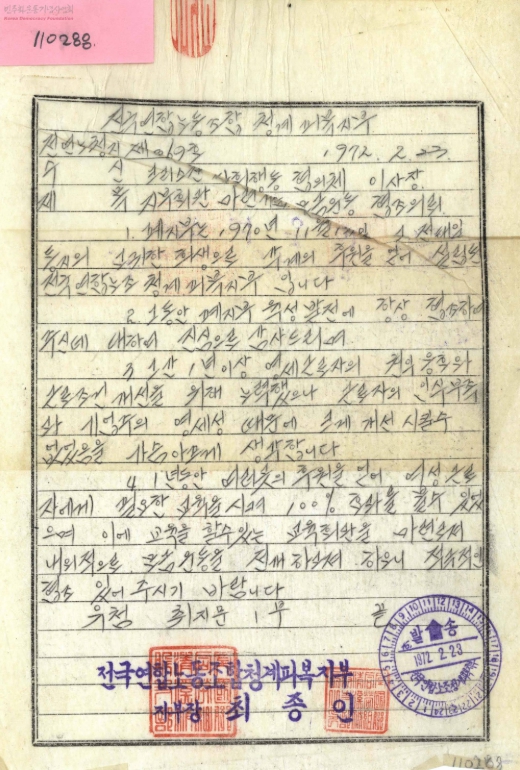 민주화운동기념사업회
Korea Democracy Foundation
110288
전국연합노동조합 청계피복지부
전연노청지 제 호 1972. 2. 23.
수 신 크리스챤 사회행동 협의체 이사장
제 목 지부회관 마련 모금운동 협조의뢰
1. 폐지부는 1970년 11월 13일 고 전태일
동지의 희생으로 각계의 후원을 얻어 설립된
전국연합노조 청계피복지부 입니다
2. 그동안 폐지부 육성 발전에 항상 협조하여
주신데 대하여 진심으로 감사드리며
3. 그간 1년이상 영세근로자의 권익옹호와
근로조건 개선을 위해 노력했으나 근로자의 인식부족
과 기업주의 영세성 때문에 크게 개선 시킬수
없었음을 가슴아프게 생각합니다
4. 1년동안 여러분의 후원을 얻어, 여성근로
자에게 필요한 교육을 시켜 100% 효과를 볼수 있었
으며 이에 교육을 할수있는 교육회관을 마련코저
내외적으로 모금운동을 전개 하고저 하오니 적극적인
협조 있어 주시기 바랍니다
유첨 취지문 1부 끝
발송
1972. 2. 23
전국연합노동조합청계피복지부
지부장 최종인
110288